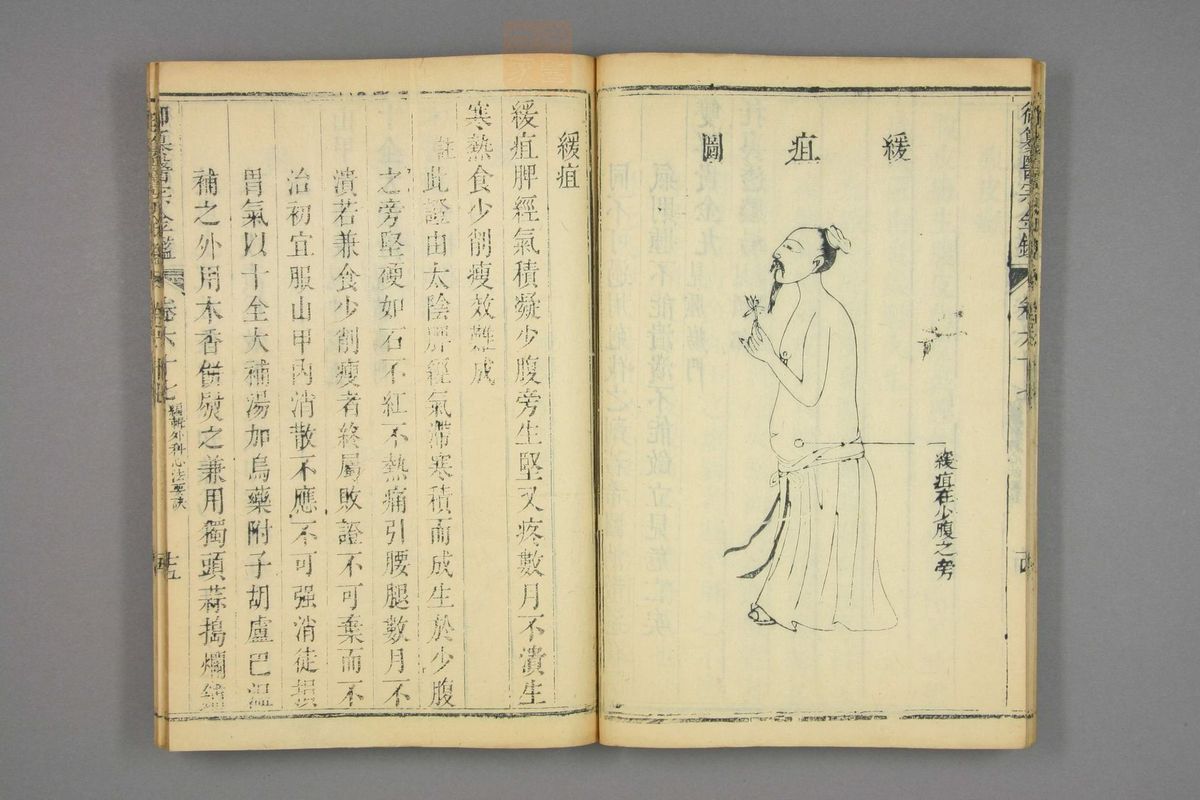 緩疽圖
緩疽在少腹之旁
緩疽
緩疽脾經氣積凝少腹旁生堅又疼數月不潰生
寒熱食少削瘦效難成
註此證由太陰脾經氣滯寒積而成生於少腹
之旁堅硬如石不紅不熱痛引腰腿數月不
潰若兼食少削瘦者終屬敗證不可棄而不
治初宜服山甲內消散不應不可强消徒損
胃氣以十全大補湯加烏藥附子胡盧巴溫
補之外用木香餅熨之兼用獨頭蒜搗爛鋪
御纂醫宗金鑑
卷六十七
編輯外科心法要訣
十五